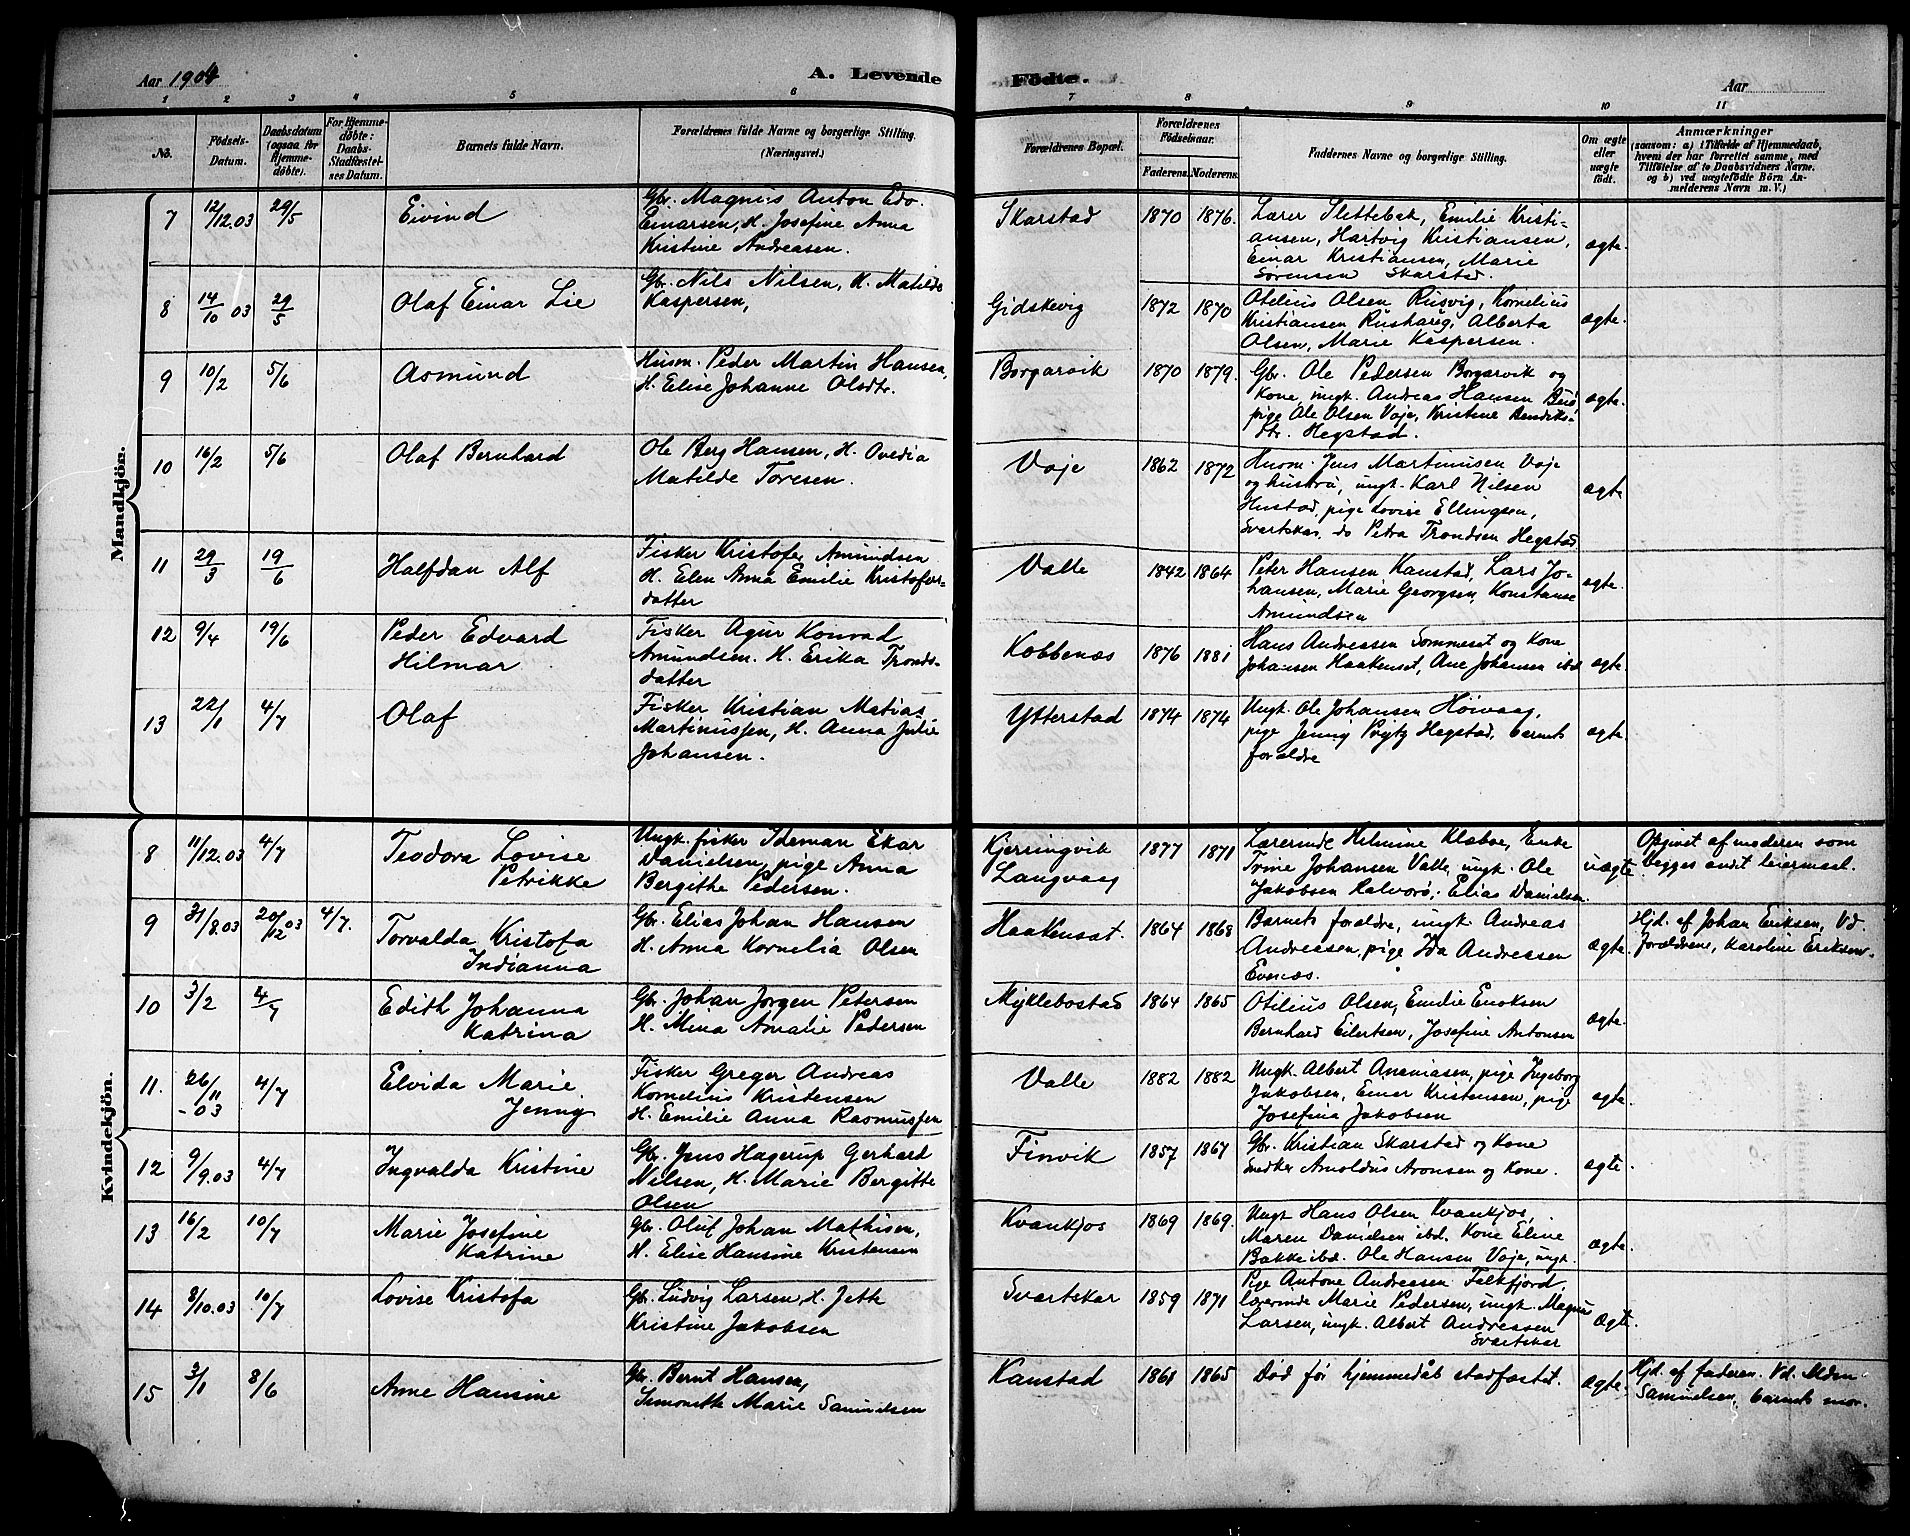 Aar 1904
A. Levende
Fødte.
Aar
1 2 3 4 5 6 7 8 9 10 11
No.
Fødsels-
Datum.
Daabsdatum
(ogsaa for
Hjemme-
døbte).
For Hjemme-
døbte:
Daabs-
Stadfæstel-
ses Datum.
Barnets fulde Navn.
Forældrenes fulde Navne og borgerlige Stilling.
(Næringsvei.)
Forældrenes Bopæl.
Forældrenes
Fødselsaar.
Faderens. Moderens.
Faddernes Navne og borgerlige Stilling.
Om ægte
eller
uægte
født.
Anmærkninger
(saasom: a) i Tilfælde af Hjemmedaab,
hvem der har forrettet samme, med
Tilføielse af to Daabsvidners Navne,
og b) ved uægtefødte Børn An-
melderens Navn m. V.)
Mandkjøn.
7 12/12.03 29/5 Eivind
Gbr. Magnus Anton Edv.
Einarsen, H. Josefine Anna
Kristine Andreasen.
Skarstad 1870 1876.
Lærer Slettebak, Emilie Kristi-
ansen, Hartvig Kristiansen,
Einar Kristiansen, Marie
Sørensen Skarstad.
ægte.
8 14/10 03 29/5 Olaf Einar Lie
Gbr. Nils Nilsen, H. Matilde
Kaspersen,
Gidskevig 1872 1870
Otilius Olsen Rusvig, Kornelius
Kristiansen Rushaug, Alberta
Olsen, Marie Kaspersen.
ægte.
9 10/2 5/6 Asmund
Husm. Peder Martin Hansen,
H. Elise Johanne Olsdtr.
Borgarvik 1870 1879.
Gbr. Ole Pedersen Borgarvik og
Kone, ungk. Andreas Hansen
pige Ole Olsen Voje, Kristine Bendiks-
dtr. Hegstad.
ægte.
10 16/2 5/6 Olaf Bernhard
Ole Berg Hansen, H. Ovedia
Matilde Toresen.
Voje 1862 1872
Husm. Jens Martinusen Voje
og hustru, ungk. Karl Nilsen
Hustad, pige Lovise Ellingsen,
Svartskar, do Petra Trondsen Hegstad
ægte
11 29/3 19/6 Halfdan Alf
Fisker Kristofer Amundsen
H. Elen Anna Emilie Kristofers-
datter
Valle 1842 1864
Peter Hansen Kanstad, Lars Jo-
hansen, Marie Georgsen, Konstanse
Amundsen
ægte.
12 9/4 19/6 Peder Edvard
Hilmar
Fisker Agur Konrad
Amundsen. H. Erika Tronds-
datter
Kobbenæs 1876 1881
Hans Andreasen Sommeset og Kone
Johansen Haakenset, Ane Johansen ibd
ægte.
13 22/1 4/7 Olaf
Fisker Kristian Matias
Martinussen, H. Anna Julie
Johansen.
Ytterstad 1874 1874
Ungk. Ole Johansen Høivaag,
pige Jenny Prytz Hegstad, barnets
forældre
ægte.
Kvindekjøn.
8 11/12.03 4/7 Teodora Lovise
Petrikke
Ungk. fisker Ideman Ekar
Danielsen, pige Anna
Bergithe Pedersen.
Kjerringvik
Langvaag
1877 1871
Lærerinde Helmine Klæboe, Enke
Trine Johansen Valle, ungk. Ole
Jakobsen Ralvorø, Elias Danielsen
uægte
Opgivet af moderen som
begges andet leiermaal.
9 31/8.03 20/12 03 4/7. Torvalda Kristofa
Indianna
Gbr. Elias Johan Hansen
H. Anna Kornelia Olsen
Haakenset. 1864 1868
Barnets forældre, ungk. Andreas
Andreassen, pige Ida Andreasen
Evenæs.
ægte.
Hjd. af Johan Eriksen, Vd.
Forældrene, Karoline Eriksen.
10 3/2 4/7 Edith Johanna
Katrina
Gbr. Johan Jørgen Petersen
H. Mina Amalie Pedersen
Myklebostad 1864 1865
Otilius Olsen, Emilie Enoksen
Bernhard Eilertsen, Josefine Antonsen
ægte.
11. 26/11 -03 4/7 Elvida Marie
Jenny
Fisker Greger Andreas
Kornelius Kristensen
H. Emilie Anna Rasmussen
Valle 1882 1882
Ungk. Albert Ananiasen, pige Ingeborg
Jakobsen, Einar Kristensen, pige
Josefina Jakobsen
ægte.
12 9/9.03 4/7 Ingvalda Kristine
Gbr. Jens Hagerup Gerhard
Nilsen, H. Marie Bergitte
Olsen
Finvik 1857 1867
Gbr. Kristian Skarstad og Kone
Snedker Arnoldus Aronsen og Kone.
ægte.
13 16/2 10/7 Marie Josefine
Katrine
Gbr. Oluf Johan Mathisen,
H. Elise Hansine Kristensen
Kvankjos 1869 1869.
Ungk Hans Olsen Kvankjos,
Maren Danielsen ibd. Kone Eline
Bakke ibd. Ole Hansen Voje, ungk.
ægte.
14 3/10.03 10/7 Lovise Kristofa
Gbr. Ludvig Larsen, H. Jette
Kristine Jakobsen
Svartskar 1859 1871
Pige Antone Andreasen Falkfjord,
lærerinde Marie Pedersen, ungk. Magnus
Larsen, ungk. Albert Andreasen
Svartskar
ægte.
15 3/1 8/6 Anne Hansine
Gbr. Bernt Hansen,
Simonette Marie Samuelsen
Kanstad 1861 1865
Død før hjemmedåb stadfæstet.
ægte.
Hjd. af faderen. Vd.
Samuelsen, barnets mor.